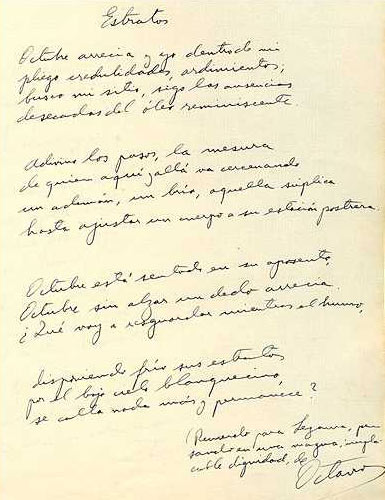 Estratos
Octubre arrecia y yo dentro de mi
pliego credulidades, ardimientos;
busco mi sitio, sigo las ausencias
desecadas del óleo reminiscente.
Adivino los pasos, la mesura
de quien aquí, allá va cercenando
un ademán, un brío, aquella súplica
hasta ajustar un cuerpo a su estación postrera.
Octubre está sentado en su aposento,
Octubre sin alzar un dedo arrecia.
¿Qué voy a resguardar mientras el humo,
disponiendo frío sus estratos
por el bajo cielo blanquecino,
se calla nada más y permanece?
(Recuerdo para Lezama, pen
sando en una magna, impla
cable dignidad, de
Octavio